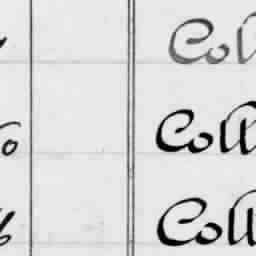 Col
Coll
Coll